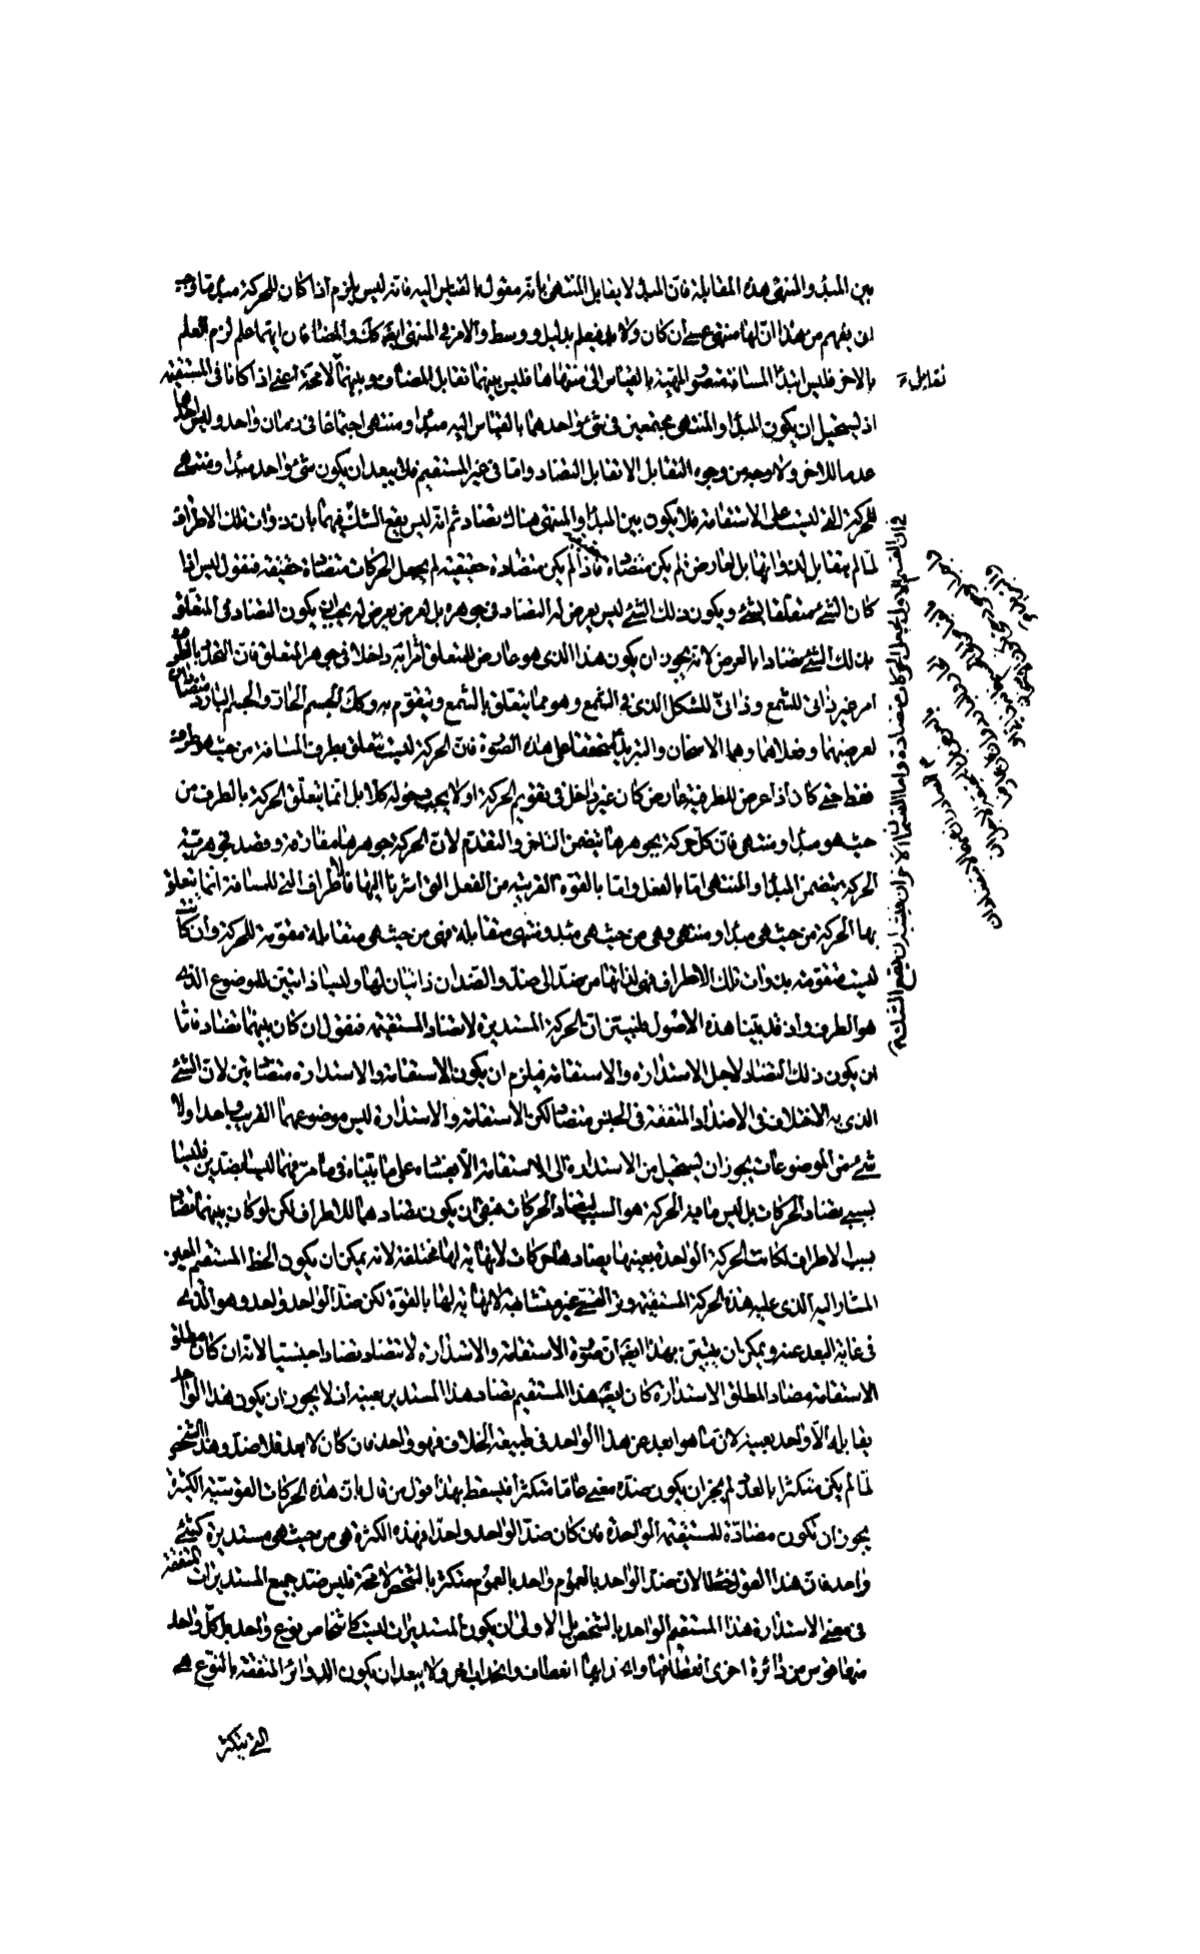 بين المبدأ والمنتهى هذه المقابلة فان المبدأ لا يقابل المنتهى بانه مقول بالقياس اليه فانه ليس يلزم اذا كان للحركة مبدأ ما وجب
ان يفهم من هذا ان لها منتهى عسى ان كان ولابد فيعلم بدليل ووسط والامر فى المنتهى ايضا كذلك والمضافان ايهما علم لزم العلم
بالاخر فليس مبدأ المسافة متصور الماهية بالقياس الى منتهاها فليس بينهما تقابل المضاف وبينهما لا محة اعنى اذا كانا فى المستقيمة
تقابل
اذ يستحيل ان يكون المبدأ والمنتهى مجتمعين فى شئ واحد هما بالقياس اليه مبدأ ومنتهى اجتماعا فى زمان واحد وليس احدهما
عدما للاخر ولا وجه من وجوه التقابل الا تقابل التضاد واما فى غير المستقيم فلا يبعد ان يكون شئ واحد مبدأ ومنتهى
للحركة التى ليست على الاستقامة فلا يكون بين المبدأ والمنتهى هناك تضاد ثم انه ليس يقع الشك فيهما بان ذوات تلك الاطراف
لما لم يتقابل لذواتها بل لعارض لم يكن متضاده فاذا لم يكن متضادة حقيقية لم يجعل الحركات متضادة حقيقة فنقول ليس اذا
كان الشئ متعلقا بشئ ويكون ذلك الشئ ليس يعرض له التضاد فى جوهره بل لعرض يعرض له يجب ان يكون التضاد فى المتعلق
بذلك الشئ تضادا بالعرض لانه يجوز ان يكون هذا الذى هو عارض للمتعلق به داخلا فى جوهر المتعلق فان التحدد بالطرف
امر غير ذاتى للشمع وذاتى للشكل الذى فى الشمع وهو مما يتعلق بالشمع ويتقوم به وكذلك الجسم الحار والجسم البارد متضادان
لعرضيهما وفعلاهما وهما الاسخان والتبريد
فقط حتى كان اذا عرض للطرفية عارض كان غير داخل فى تقويم الحركة او لا يجب دخوله كلا بل انما يتعلق الحركة بالطرف من
حيث هو مبدأ ومنتهى فان كل حركة بجوهرها يتضمن التأخر والتقدم لان الحركة جوهرها مفارقة وقصد فجوهرية
الحركة يتضمن المبدأ والمنتهى اما بالفعل واما بالقوة القريبة من الفعل التى اشرنا اليها فالاطراف التى للمسافة انما يتعلق
بها الحركة من حيث هى مبدأ ومنتهى وهى من حيث هى مبدأ ومنتهى متقابلة فهى من حيث هى متقابلة مقومة للحركة وان كانت
ليست متقومة بذوات تلك الاطراف فهى لذاتها من ضد الى ضد والضدان ذاتيان لها وليسا ذاتيين للموضوع الذى
هو الطرف واذ قد بينا هذه الاصول فلنبين ان الحركة المستديرة لا تضاد المستقيمة فنقول ان كان بينهما تضاد فاما
ان يكون ذلك التضاد لاجل الاستدارة والاستقامة فيلزم ان يكون الاستقامة والاستدارة متضادتين لان الشئ
الذى به الاختلاف فى الاضداد المتفقة فى الجنس متضاد لكن الاستقامة والاستدارة ليس موضوعهما القريب واحدا ولا
شئ من الموضوعات يجوز ان يستحيل من الاستدارة الى الاستقامة الا بفساده على ما بيناه فى ما مر فهما ليسا بضدين فليسا
بسبب تضاد الحركات بل ليس ما فيه الحركة هو السبب لتضاد الحركات فبقى ان يكون تضادهما للاطراف لكن لو كان بينهما تضاد
بسبب الاطراف لكانت الحركة الواحدة بعينها يضادها حركات لا نهاية لها مختلفة لانه يمكن ان يكون الخط المستقيم المعين
المشار اليه الذى عليه هذه الحركة المستقيمة وتر القسى غير متشابهة لا نهاية لها بالقوة لكن ضد الواحد واحد وهو الذى
فى غاية البعد عنه ويمكن ان يتبين بهذا ايضا ان صورة الاستقامة والاستدارة لا تتضاد تضادا جنسيا لانه ان كان مطلق
الاستقامة مضاد المطلق الاستدارة كان ايضا هذا المستقيم يضاد هذا المستدير بعينه اذ لا يجوز ان يكون هذا الواحد
يقابله الا واحد بعينه لان ما هو ابعد عن هذا الواحد فى طبيعة الخلاف فهو واحد فان كان لا ابعد فلا ضد وهذا الشخص
لما لم يكن متكثرا بالعدد لم يجز ان يكون ضده معنى عاما متكثرا فليسقط بهذا قول من قال بان هذه الحركات القوسية الكثيرة
يجوز ان تكون مضادة للمستقيمة الواحدة فان كان ضد الواحد واحدا فهذه الكثرة هى من حيث هى مستديرة كشئ
واحد فان هذا القول خطأ لان ضد الواحد بالعموم واحد بالعموم متكثر بالشخص لا محة فليس ضد جميع المستديرات المتفقة
فى معنى الاستدارة هذا المستقيم الواحد بالشخص بل الاولى ان يكون المستديرات ليست كاشخاص نوع واحد بل كل واحد
منها قوس من دائرة اخرى انعطافها وانحدابها انعطاف وانحداب اخر ولا يبعد ان يكون الدوائر المتفقة بالنوع هى
التى يتكثر